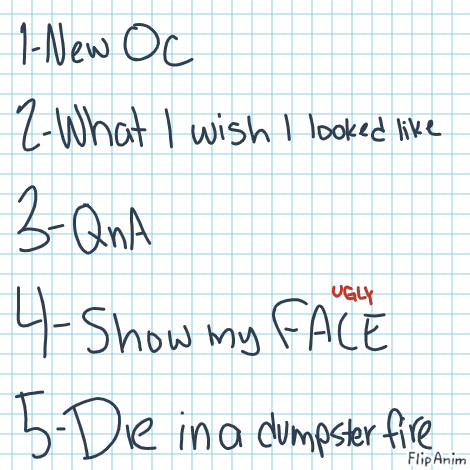 1-New OC
2-What I wish I looked like
3-QnA
UGLY
4-Show my FACE
5-Die in a dumpster fire
FlipAnim